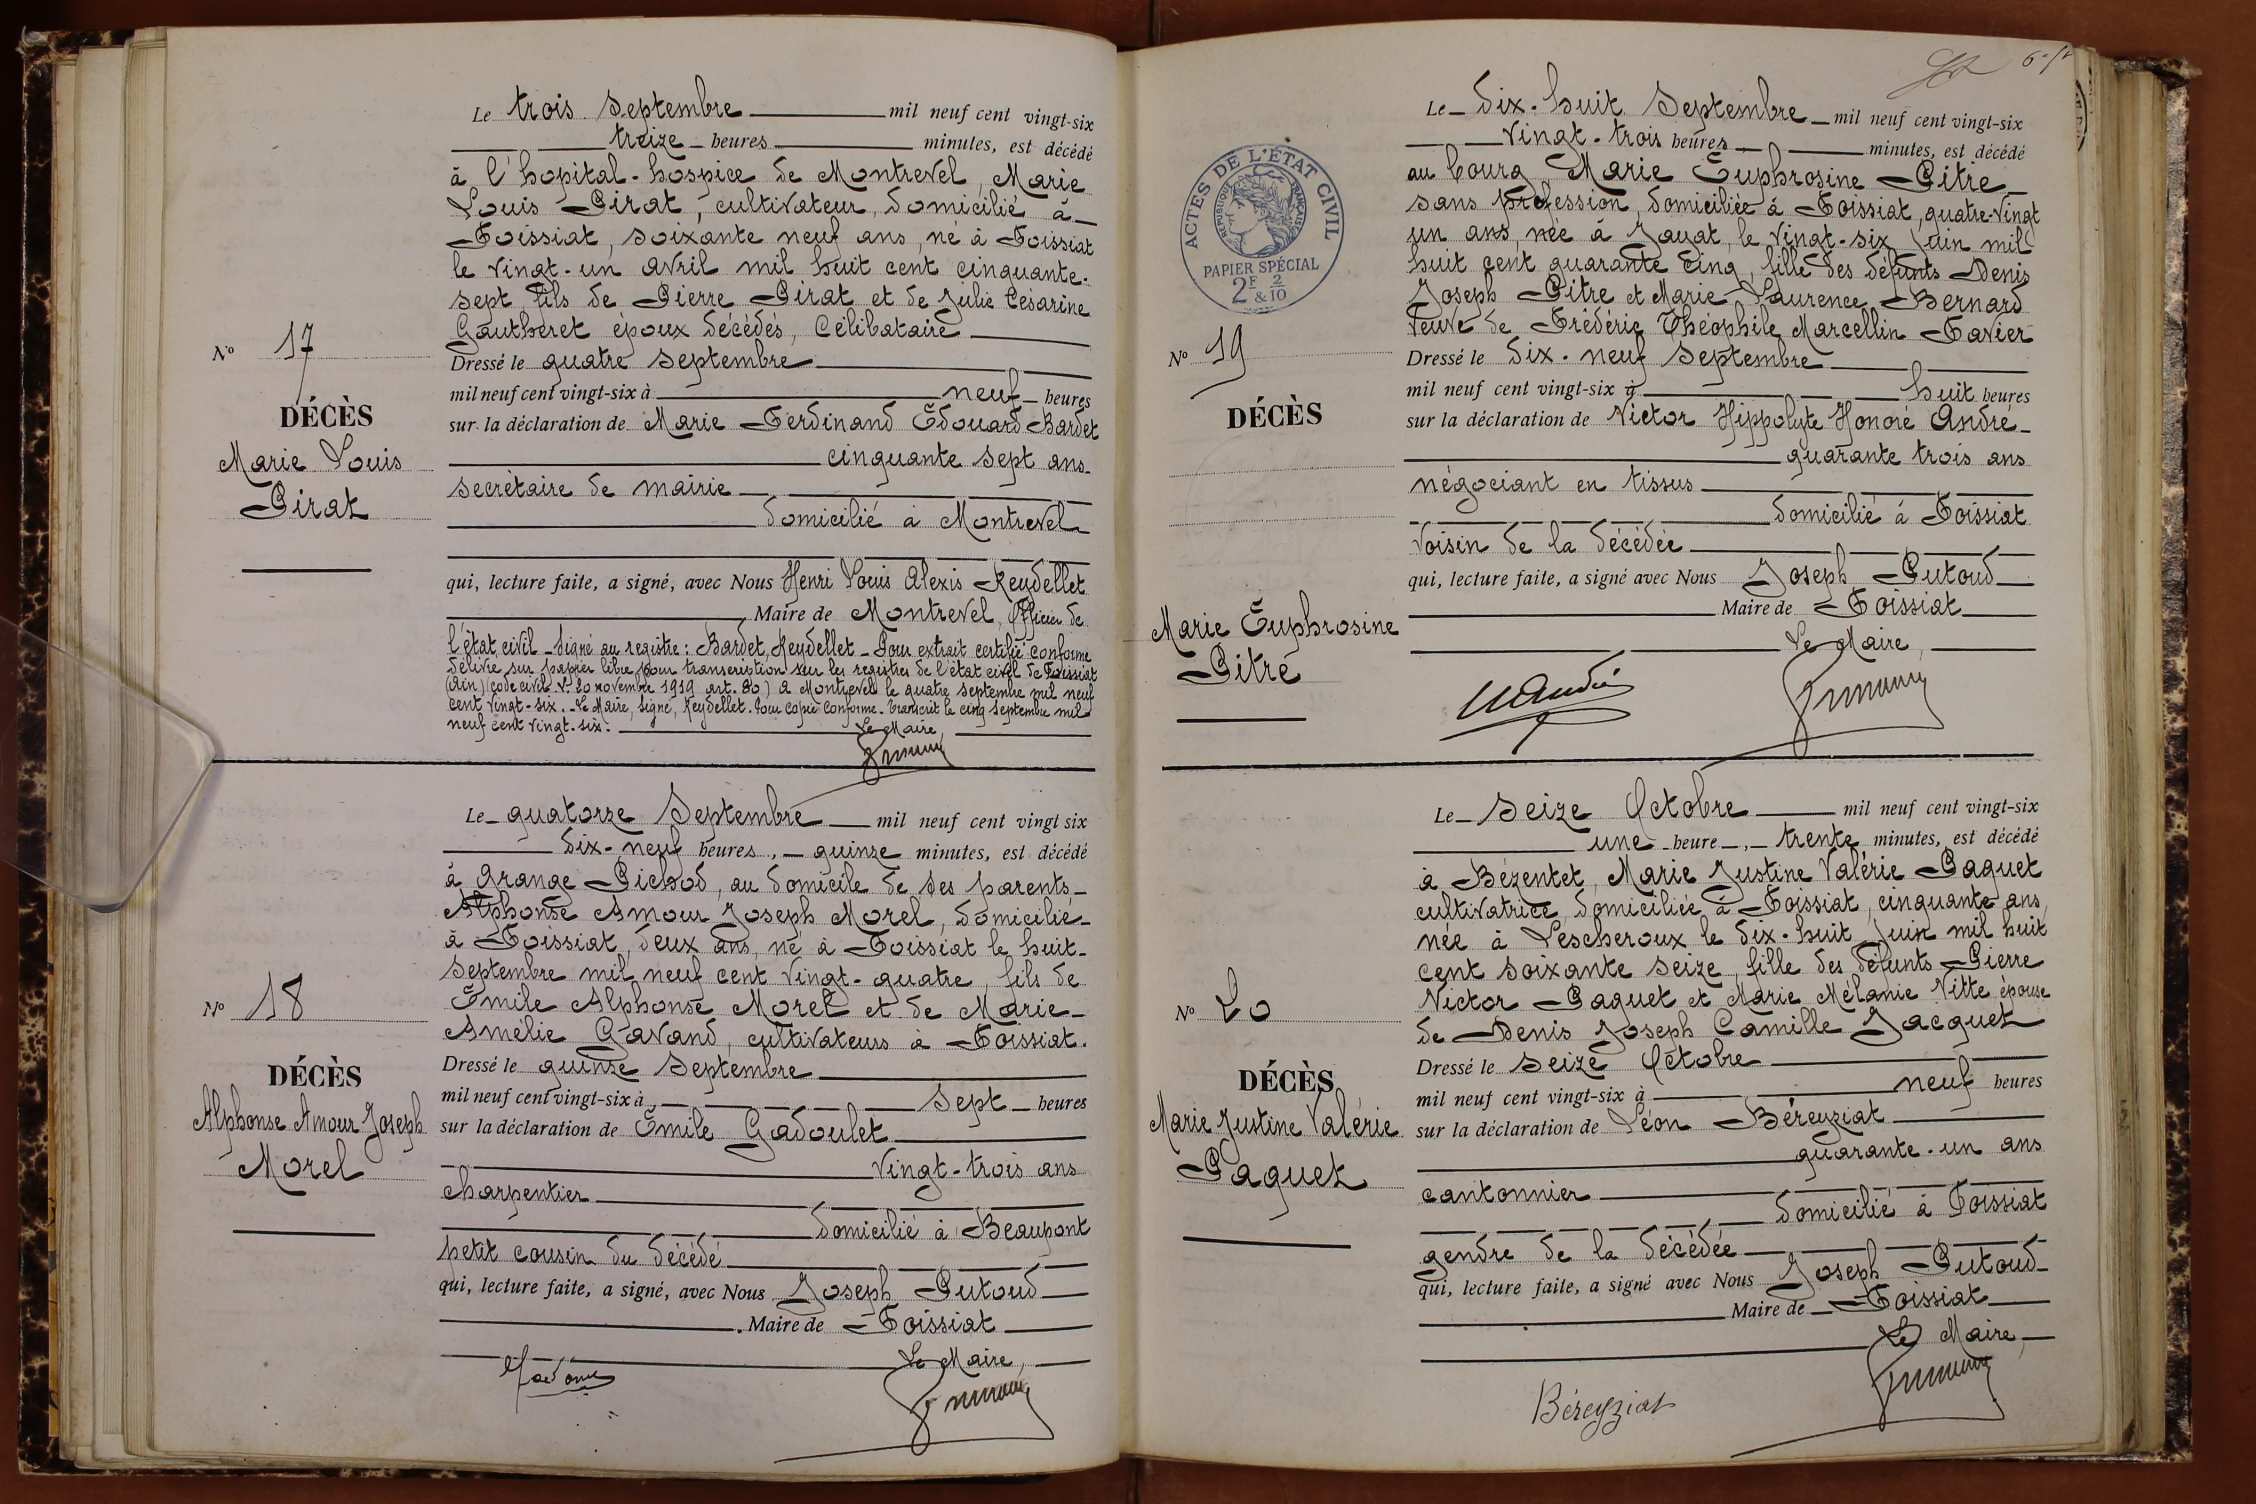 Le trois Septembre mil neuf cent vingt-six
treize heures minutes, est décédé
à l'hopital-hospice de Montrevel, Marie
Louis Pirat, cultivateur, domicilié à
Foissiat, soixante neuf ans, né à Foissiat
le vingt-un avril mil huit cent cinquante-
sept, fils de Pierre Pirat et de Julie Césarine
Gautheret époux décédés, Célibataire
No 17
Dressé le quatre septembre
mil neuf cent vingt-six à neuf heures
DÉCÈS
sur la déclaration de Marie Ferdinand Edouard Bardet
Marie Louis
Pirat
cinquante sept ans
secrétaire de mairie
domicilié à Montrevel
qui, lecture faite, a signé, avec Nous Henri Louis Alexis Reydellet
Maire de Montrevel, Officier de
l'état civil - Signé au registre: Bardet, Reydellet - Pour extrait certifié conforme
délivré sur papier libre pour transcription sur les registres de l'état civil de Foissiat
(Ain) (code civil. V. 20 novembre 1919 art. 80) A Montrevel le quatre septembre mil neuf
cent vingt-six. - Le Maire, signé, Reydellet. Pour copie conforme. Transcrit le cinq septembre mil
neuf cent vingt-six.
Le Maire
Le quatorze Septembre mil neuf cent vingt six
dix-neuf heures, quinze minutes, est décédé
à Grange Pichod, au domicile de ses parents
Alphonse Amour Joseph Morel, domicilié
à Foissiat, deux ans, né à Foissiat le huit
Septembre mil neuf cent vingt-quatre, fils de
Emile Alphonse Morel et de Marie
Amélie Gavand, cultivateurs à Foissiat.
No 18
Dressé le quinze Septembre
mil neuf cent vingt-six à Sept heures
DÉCÈS
sur la déclaration de Emile Gadoulet
Alphonse Amour Joseph
Morel
vingt-trois ans
charpentier
domicilié à Beaupont
petit cousin du décédé
qui, lecture faite, a signé, avec Nous Joseph Putoud
Maire de Foissiat
Le Maire,
Le dix-huit Septembre mil neuf cent vingt-six
vingt-trois heures minutes, est décédé
au bourg Marie Euphrosine Pitre
sans profession, domiciliée à Foissiat, quatre-vingt
un ans, née à Jayat, le vingt-six Juin mil
huit cent quarante cinq, fille des défunts Denis
Joseph Pitre et Marie Laurence Bernard
veuve de Frédéric Théophile Marcellin Favier
ACTES DE L'ÉTAT CIVIL
REPUBLIQUE FRANÇAISE
PAPIER SPÉCIAL
2F & 2/10
No 19
Dressé le dix-neuf Septembre
mil neuf cent vingt-six à huit heures
DÉCÈS
sur la déclaration de Victor Hippolyte Honoré André
quarante trois ans
négociant en tissus
domicilié à Foissiat
voisin de la décédée
qui, lecture faite, a signé avec Nous Joseph Putoud
Maire de Foissiat
Marie Euphrosine
Pitre
Le Maire,
Le Seize Octobre mil neuf cent vingt-six
une heure, trente minutes, est décédé
à Bézentet, Marie Justine Valérie Paquet
cultivatrice, domiciliée à Foissiat, cinquante ans,
née à Lescheroux le dix-huit Juin mil huit
cent soixante seize, fille des défunts Pierre
Victor Paquet et Marie Mélanie Vitte épouse
de Denis Joseph Camille Jacquet
No 20
Dressé le seize Octobre
mil neuf cent vingt-six à neuf heures
DÉCÈS
sur la déclaration de Léon Béreyziat
Marie Justine Valérie
Paquet
quarante-un ans
cantonnier
domicilié à Foissiat
gendre de la décédée
qui, lecture faite, a signé avec Nous Joseph Putoud
Maire de Foissiat
Le Maire,
Béreyziat